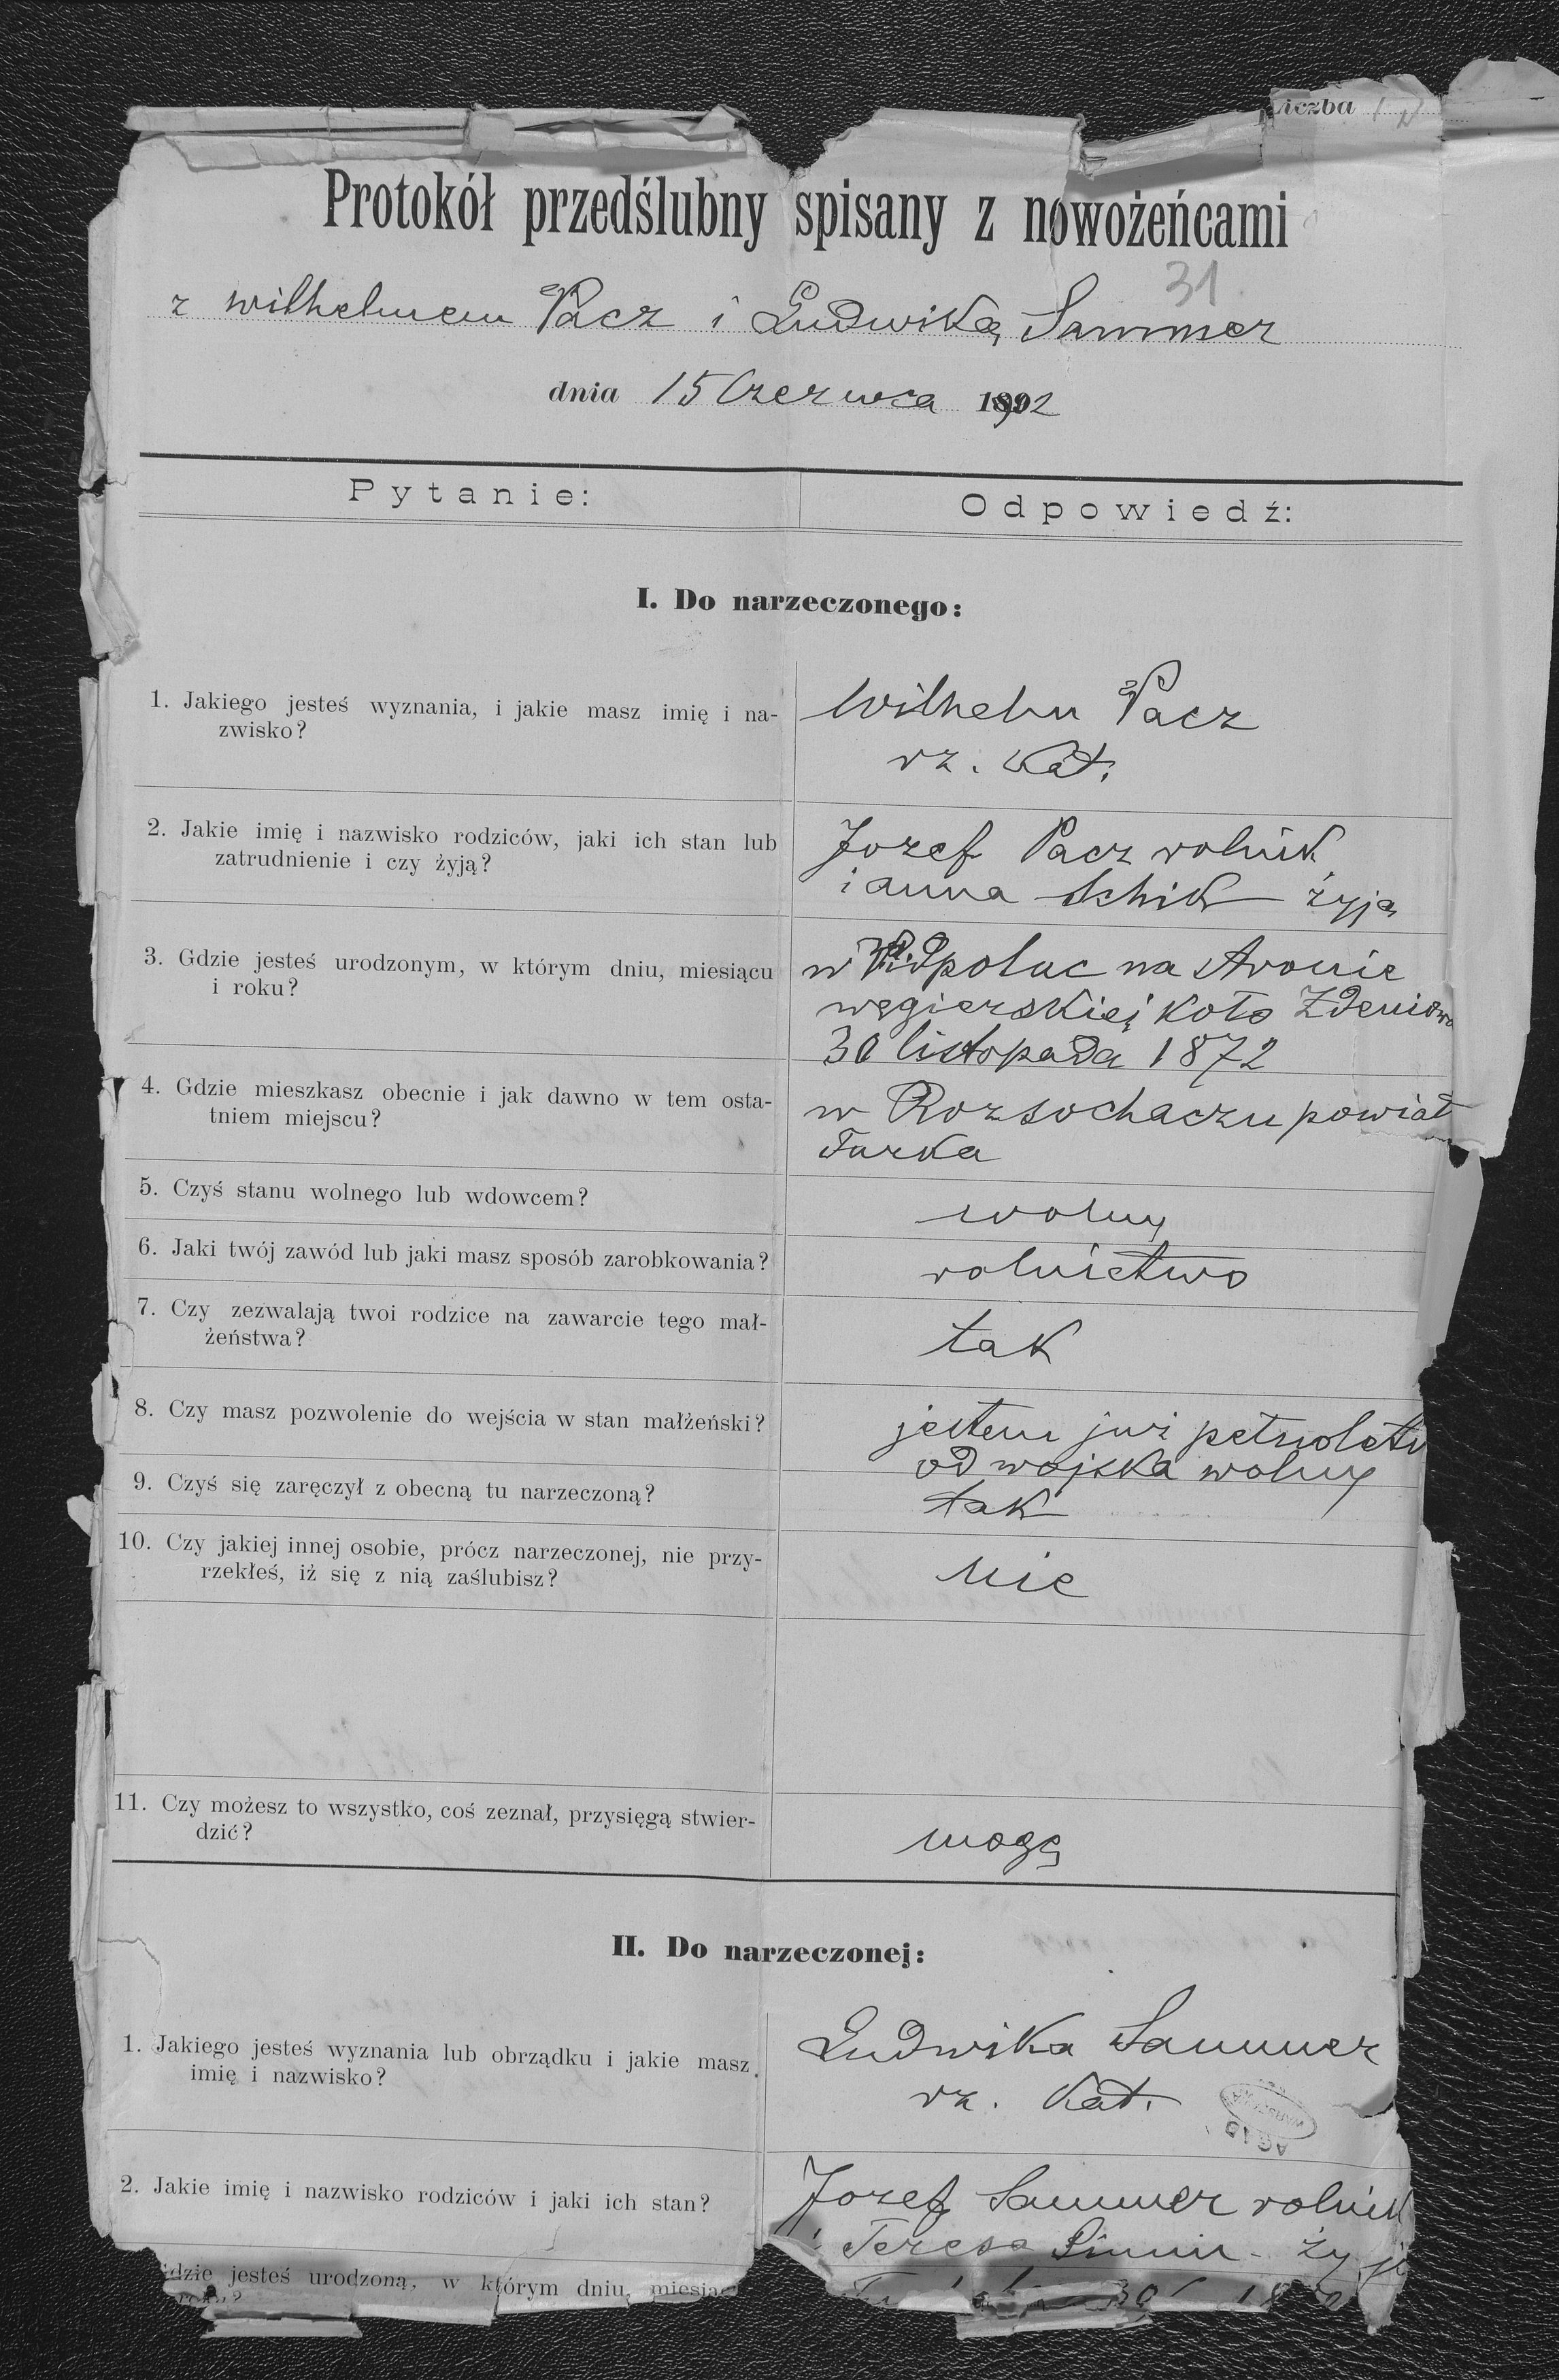 Liczba
Protokół przedślubny spisany z nowożeńcami
31
z Wilhelmem Pacz i Ludwiką Sammer
dnia 15 Czerwca 1892
Pytanie: Odpowiedź:
I. Do narzeczonego:
1. Jakiego jesteś wyznania, i jakie masz imię i na-
zwisko?
Wilhelm Pacz
rz. kat.
2. Jakie imię i nazwisko rodziców, jaki ich stan lub
zatrudnienie i czy żyją?
Jozef Pacz rolnik
i Anna Schik żyją
3. Gdzie jesteś urodzonym, w którym dniu, miesiącu
i roku?
w Pidpoluc na stronie
węgierskiej koło Zdeniowa
30 listopada 1872
4. Gdzie mieszkasz obecnie i jak dawno w tem osta-
tniem miejscu?
w Rozsochaczu powiat
Turka
5. Czyś stanu wolnego lub wdowcem?
wolny
6. Jaki twój zawód lub jaki masz sposób zarobkowania?
rolnictwo
7. Czy zezwalają twoi rodzice na zawarcie tego mał-
żeństwa?
tak
8. Czy masz pozwolenie do wejścia w stan małżeński?
jestem już
od wojska wolny
9. Czyś się zaręczył z obecną tu narzeczoną?
tak
10. Czy jakiej innej osobie, prócz narzeczonej, nie przy-
rzekłeś, iż się z nią zaślubisz?
nie
11. Czy możesz to wszystko, coś zeznał, przysięgą stwier-
dzić?
mogę
II. Do narzeczonej:
1. Jakiego jesteś wyznania lub obrządku i jakie masz
imię i nazwisko?
Ludwika Sammer
rz. kat.
AGAD
2. Jakie imię i nazwisko rodziców i jaki ich stan?
Jozef Sammer rolnik
i Teresa żyją
dzie jesteś urodzoną, w którym dniu, miesiąc